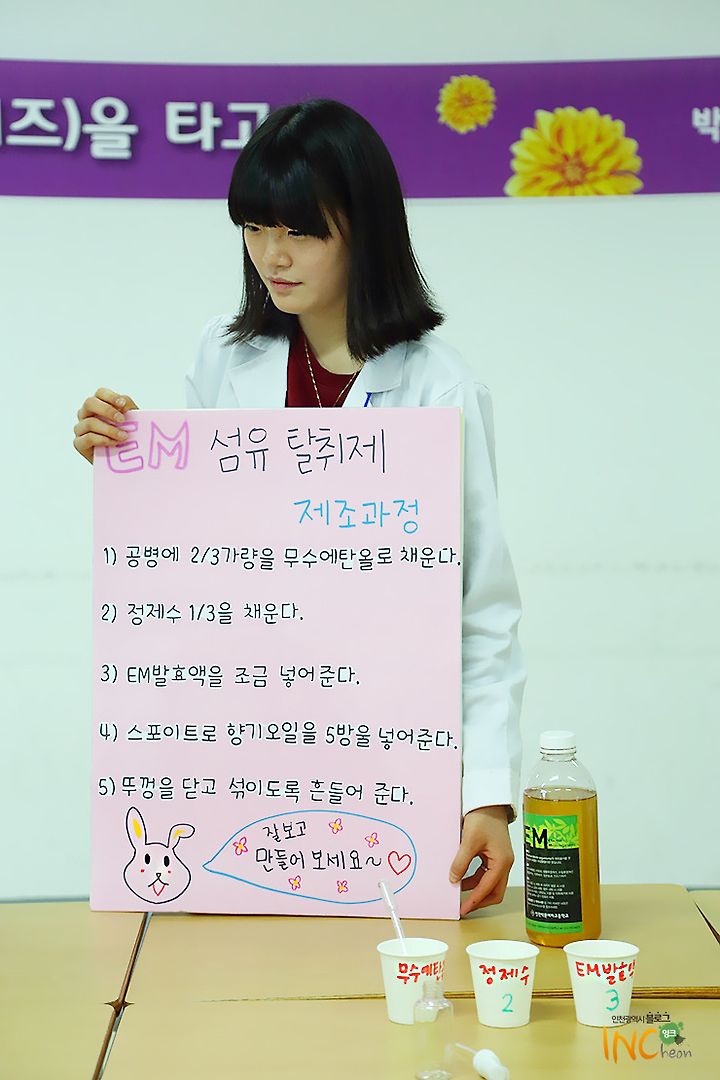 즈)을 타고
박
EM 섬유 탈취제
제조과정
1) 공병에 2/3가량을 무수에탄올로 채운다.
2) 정제수 1/3을 채운다.
3) EM발효액을 조금 넣어준다.
4) 스포이트로 향기오일을 5방울 넣어준다.
5) 뚜껑을 닫고 섞이도록 흔들어 준다.
잘보고
만들어 보세요~
EM
무수에탄
정제수
2
EM발효액
3
인천광역시 블로그
INCheon
잉크